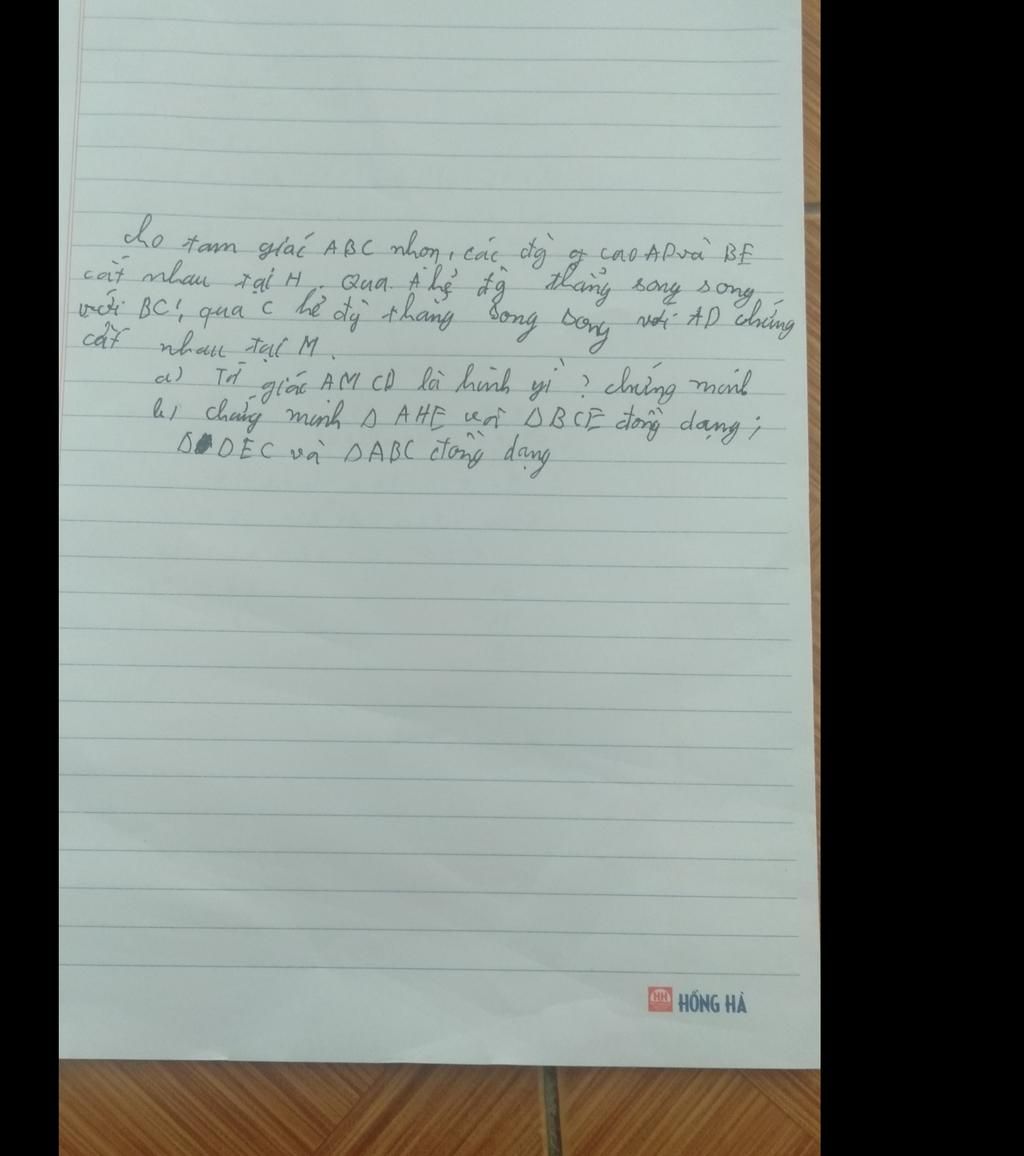 Cho tam giác ABC nhọn, các đg cao AD và BE
cắt nhau tại H. Qua A kẻ đg thẳng song song
với BC, qua C kẻ đg thẳng song song với AD chúng
cắt nhau tại M.
a) Tứ giác AMCD là hình gì? chứng minh
b) chứng minh Δ AHE và ΔBCE đồng dạng;
Δ DEC và ΔABC đồng dạng
HH HỒNG HÀ